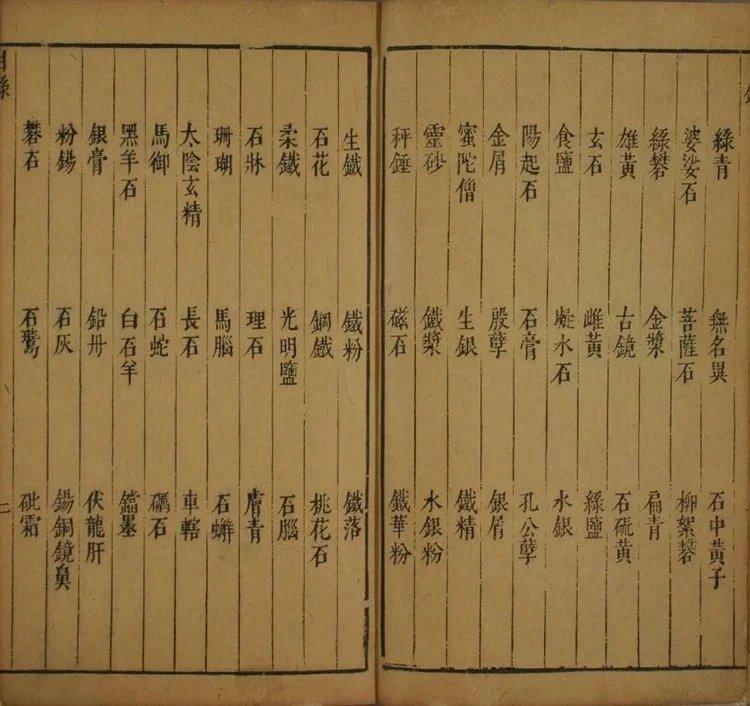 綠青 無名異 石中黃子
婆娑石 菩薩石 柳絮礬
綠礬 金漿 扁青
雄黃 古鏡 石硫黃
玄石 雌黃 綠鹽
食鹽 凝水石 水銀
陽起石 石膏 孔公孽
金屑 殷孽 銀屑
蜜陀僧 生銀 鐵精
靈砂 鐵漿 水銀粉
秤錘 磁石 鐵華粉
生鐵 鐵粉 鐵落
石花 鋼鐵 桃花石
柔鐵 光明鹽 石腦
石牀 理石 膚青
珊瑚 馬腦 石蠏
太陰玄精 長石 車轄
馬御 石蛇
黑羊石 白石羊 鐺墨
銀膏 鉛丹 伏龍肝
粉錫 石灰 錫銅鏡鼻
礜石 石鷰 砒霜
目錄 二